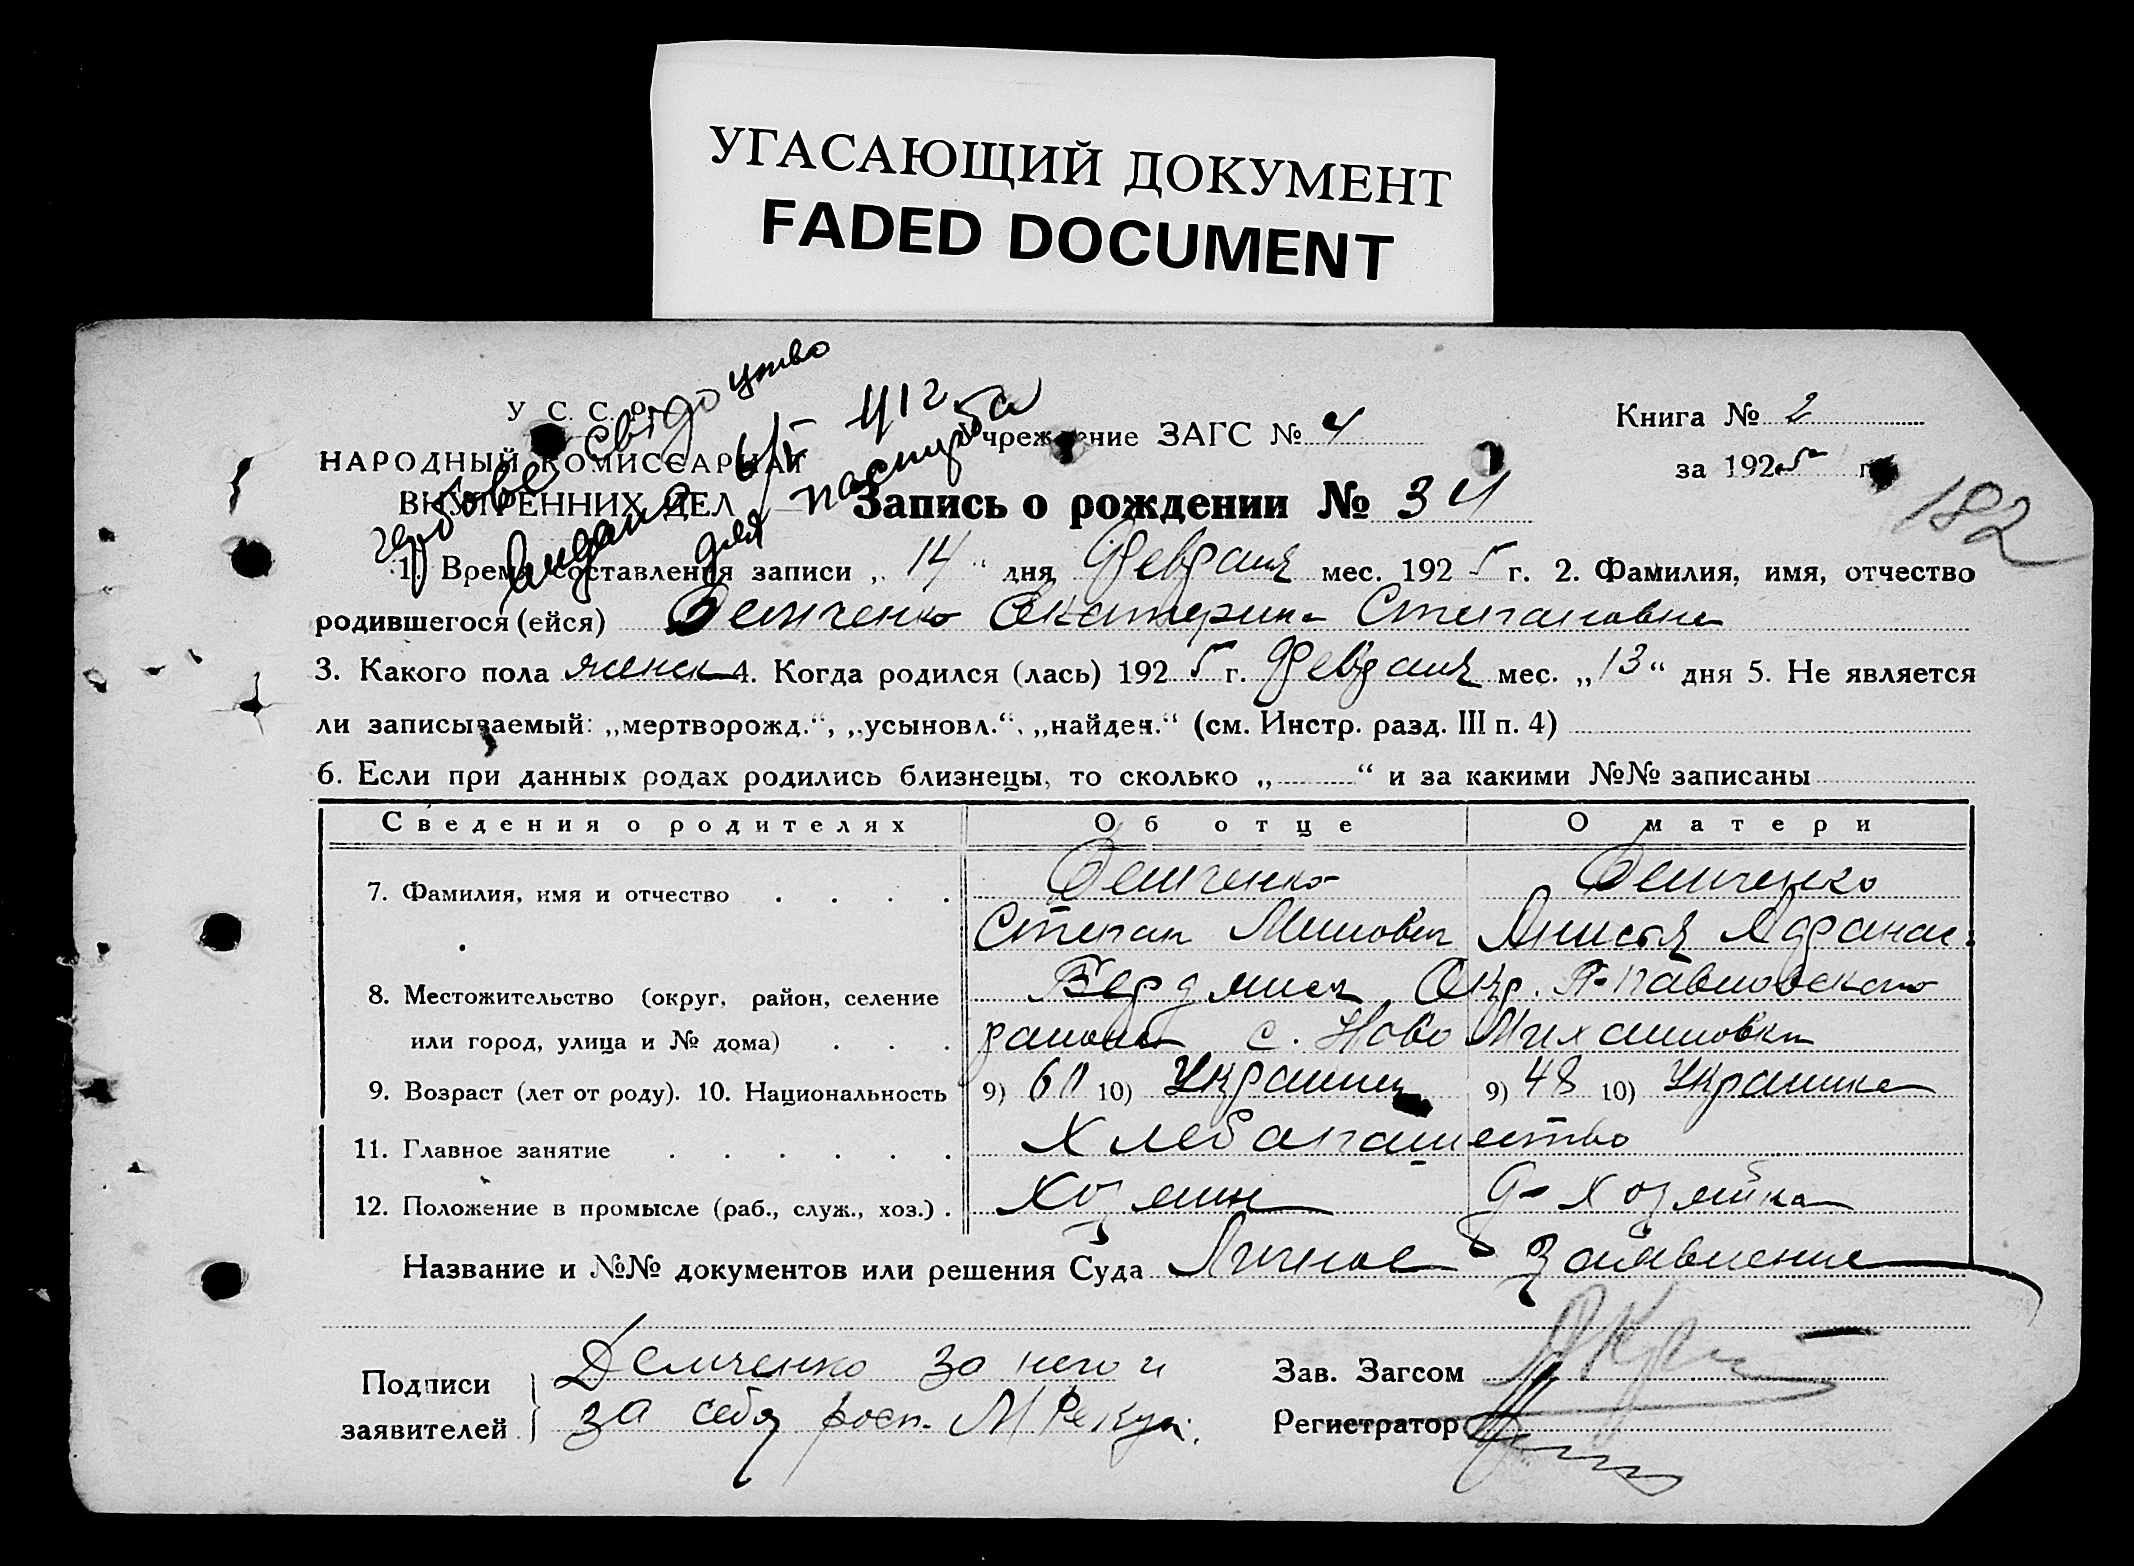 УГАСАЮЩИЙ ДОКУМЕНТ
FADED DOCUMENT
У. С. С. Р.
НАРОДНЫЙ КОМИССАРИАТ
ВНУТРЕННИХ ДЕЛ
свідоцтво
видано
для паспорта
Учреждение ЗАГС № 4
Книга № 2
за 1925 г.
182
Запись о рождении № 34
1. Время составления записи „14“ дня Февраля мес. 1925 г. 2. Фамилия, имя, отчество
родившегося (ейся) Демченко Екатерина Степановна
3. Какого пола женск 4. Когда родился (лась) 1925 г. Февраля мес. „13“ дня 5. Не является
ли записываемый: „мертворожд.“, „усыновл.“, „найден.“ (см. Инстр. разд. III п. 4)
6. Если при данных родах родились близнецы, то сколько „ “ и за какими №№ записаны
Сведения о родителях Об отце О матери
7. Фамилия, имя и отчество Демченко Демченко
Степан Афанас.
8. Местожительство (округ, район, селение Бердянск Окр. Павловского
или город, улица и № дома) района с. Ново Михайловки
9. Возраст (лет от роду). 10. Национальность 9) 60 10) Украинец 9) 48 10) Украинка
11. Главное занятие Хлебопашество
12. Положение в промысле (раб., служ., хоз.) Хозяин д-хозяйка
Название и №№ документов или решения Суда Личное Заявление
Подписи заявителей Демченко за него и
за себя росп.
Зав. Загсом
Регистратор